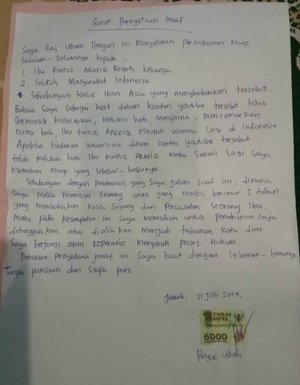 Surat Pernyataan Maaf
Saya Rey Utami Dengan Ini Menyatakan Permohonan Maaf
Sedalam - dalamnya kepada :
1. Ibu Fairuz Arafiq Beserta keluarga
2. Seluruh Masyarakat Indonesia
Sehubungan kasus Ikan Asin yang menghebohkan tersebut.
Bahwa Saya sebagai host dalam konten youtube tersebut tidak
Bermaksud melecehkan, melukai hati, menghina, mencemarkan
nama baik, Ibu Fairuz Arafiq Maupun Wanita Lain di Indonesia.
Apabila tindakan Wawancara dalam konten youtube tersebut
telah melukai hati Ibu Fairuz Arafiq Maka Sekali Lagi Saya
Memohon Maaf yang Sebesar - besarnya.
Sehubungan dengan Penahanan yang Saya jalani saat ini, dimana
Saya Masih memiliki Seorang anak yang Masih berumur 5 tahun
yang membutuhkan kasih Sayang dan Perawatan Seorang Ibu,
Maka Pada Kesempatan ini Saya memohon untuk Penahanan Saya
ditangguhkan atau dialihkan Menjadi tahanan Kota dan
Saya berjanji akan koperatif Mengikuti Proses Hukum
Demikian Pernyataan Maaf ini Saya buat dengan Sebenar - benarnya
Tanpa Paksaan dari Siapa pun
Jakarta, 21 Juli 2019,
METERAI
TEMPEL
6000